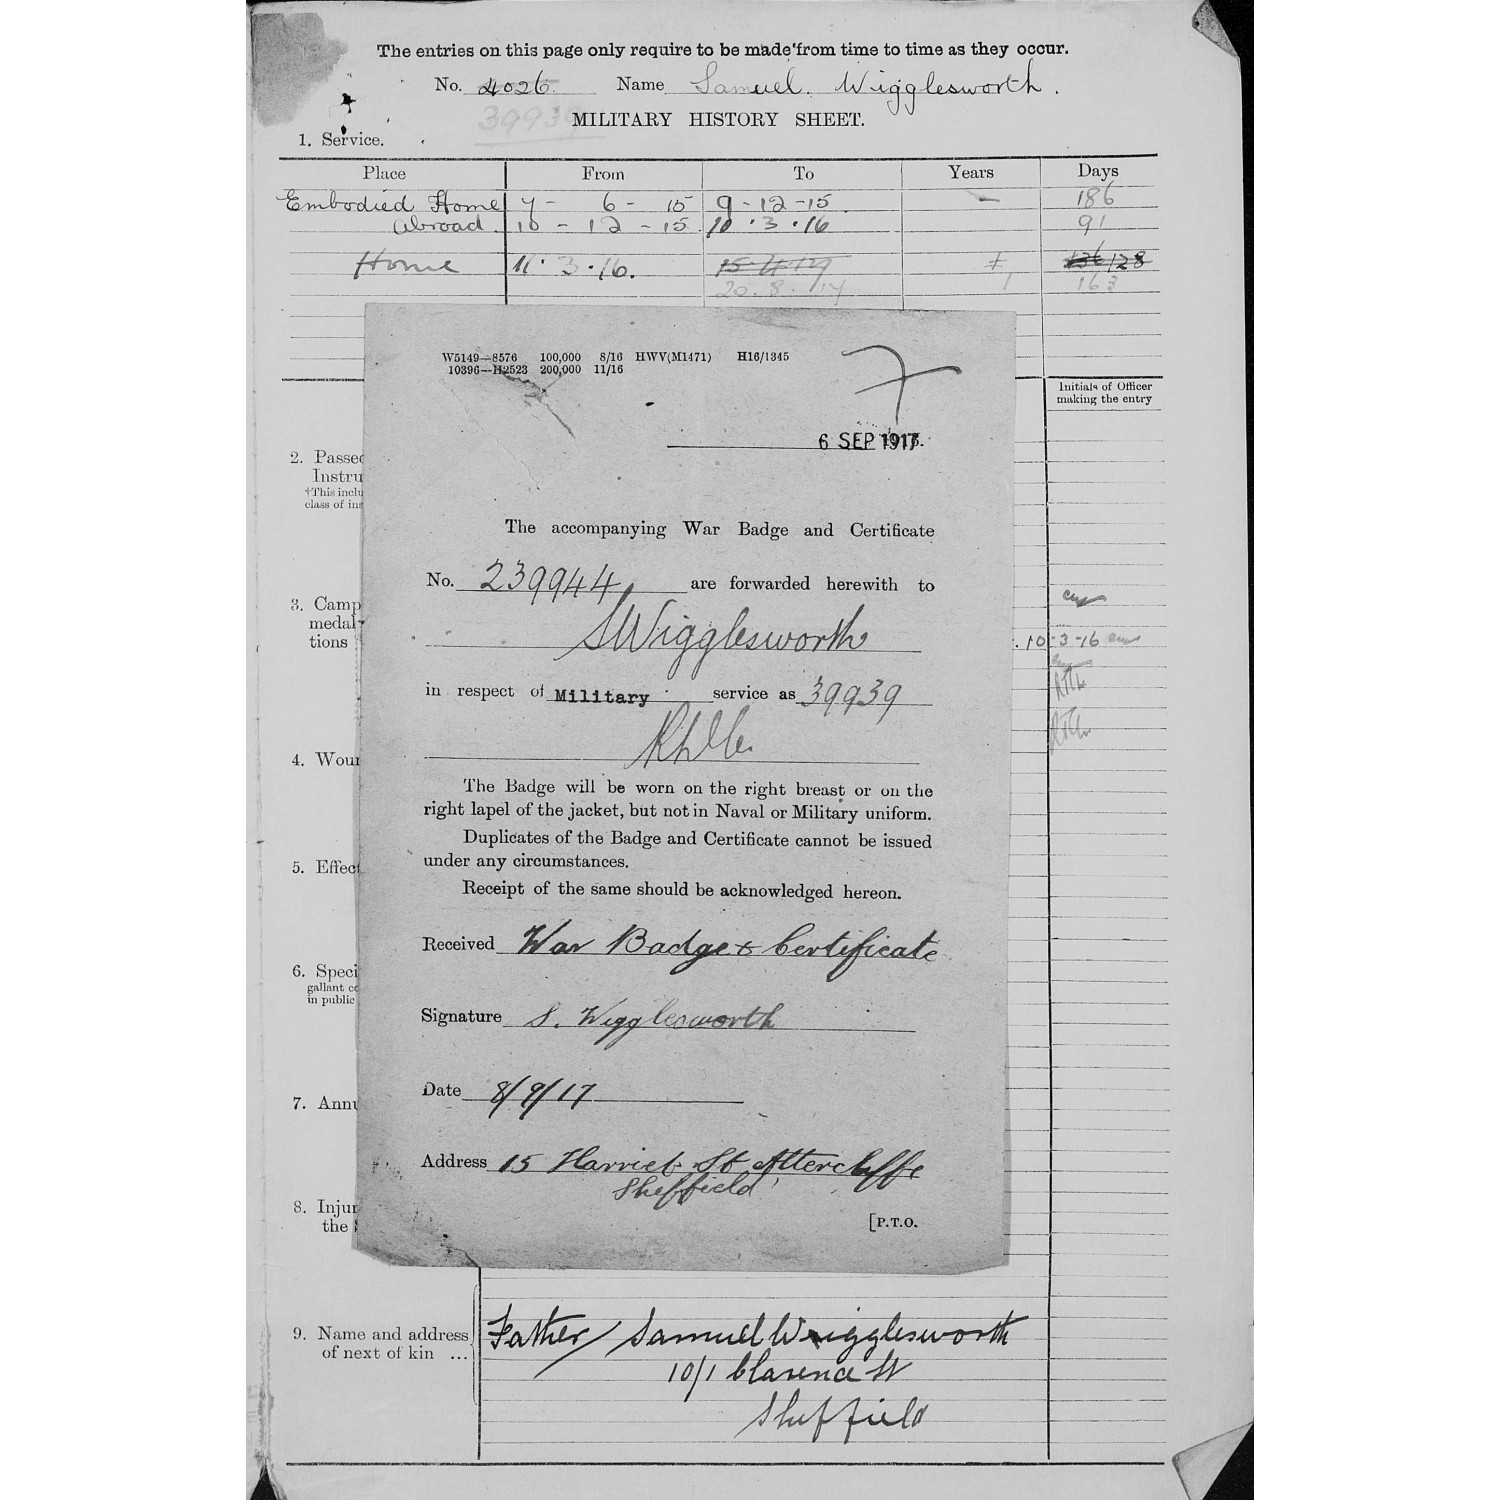 The entries on this page only require to be made from time to time as they occur.
No. 4026 Name Samuel. Wigglesworth.
39939
MILITARY HISTORY SHEET.
1. Service.
Place From To Years Days
Embodied Home 7 - 6 - 15 9 - 12 - 15 — 186
Abroad. 10 - 12 - 15 10 . 3 . 16 91
Home 11 . 3 . 16. 15-4-17 1 136 128
20. 8. 17 1 163
W5149—8576 100,000 8/16 HWV(M1471) H16/1345
10396—H2523 200,000 11/16
Initials of Officer
making the entry
7
6 SEP 1917.
2. Passed
Instru
†This inclu
class of ins
The accompanying War Badge and Certificate
No. 239944, are forwarded herewith to
3. Camp
medal
tions
S Wigglesworth
. 10-3-16
in respect of Military service as 39939
4. Woun
The Badge will be worn on the right breast or on the
right lapel of the jacket, but not in Naval or Military uniform.
Duplicates of the Badge and Certificate cannot be issued
5. Effect
under any circumstances.
Receipt of the same should be acknowledged hereon.
Received War Badge & Certificate
6. Speci
gallant co
in public
Signature S. Wigglesworth
Date 8/9/17
7. Annu
Address 15 Harriet St Attercliffe
Sheffield
8. Injur
the
[P.T.O.
9. Name and address
of next of kin ...
Father / Samuel Wigglesworth
10/1 Clarence St
Sheffield